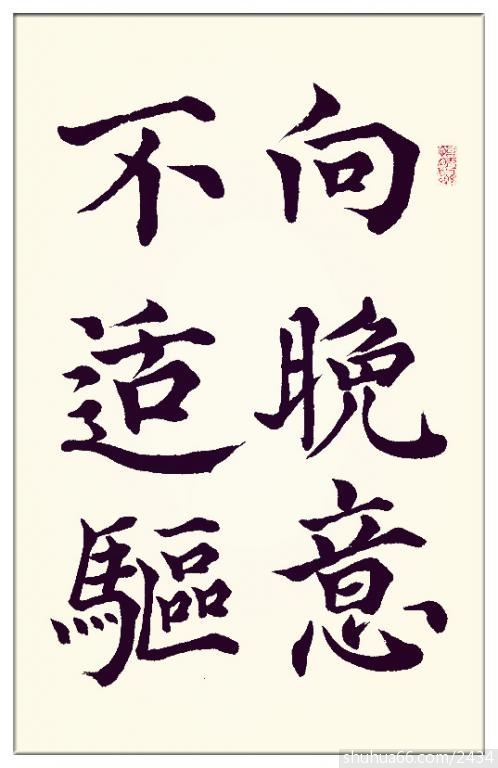 向晚意
不适驅
shuhua66.com/2434